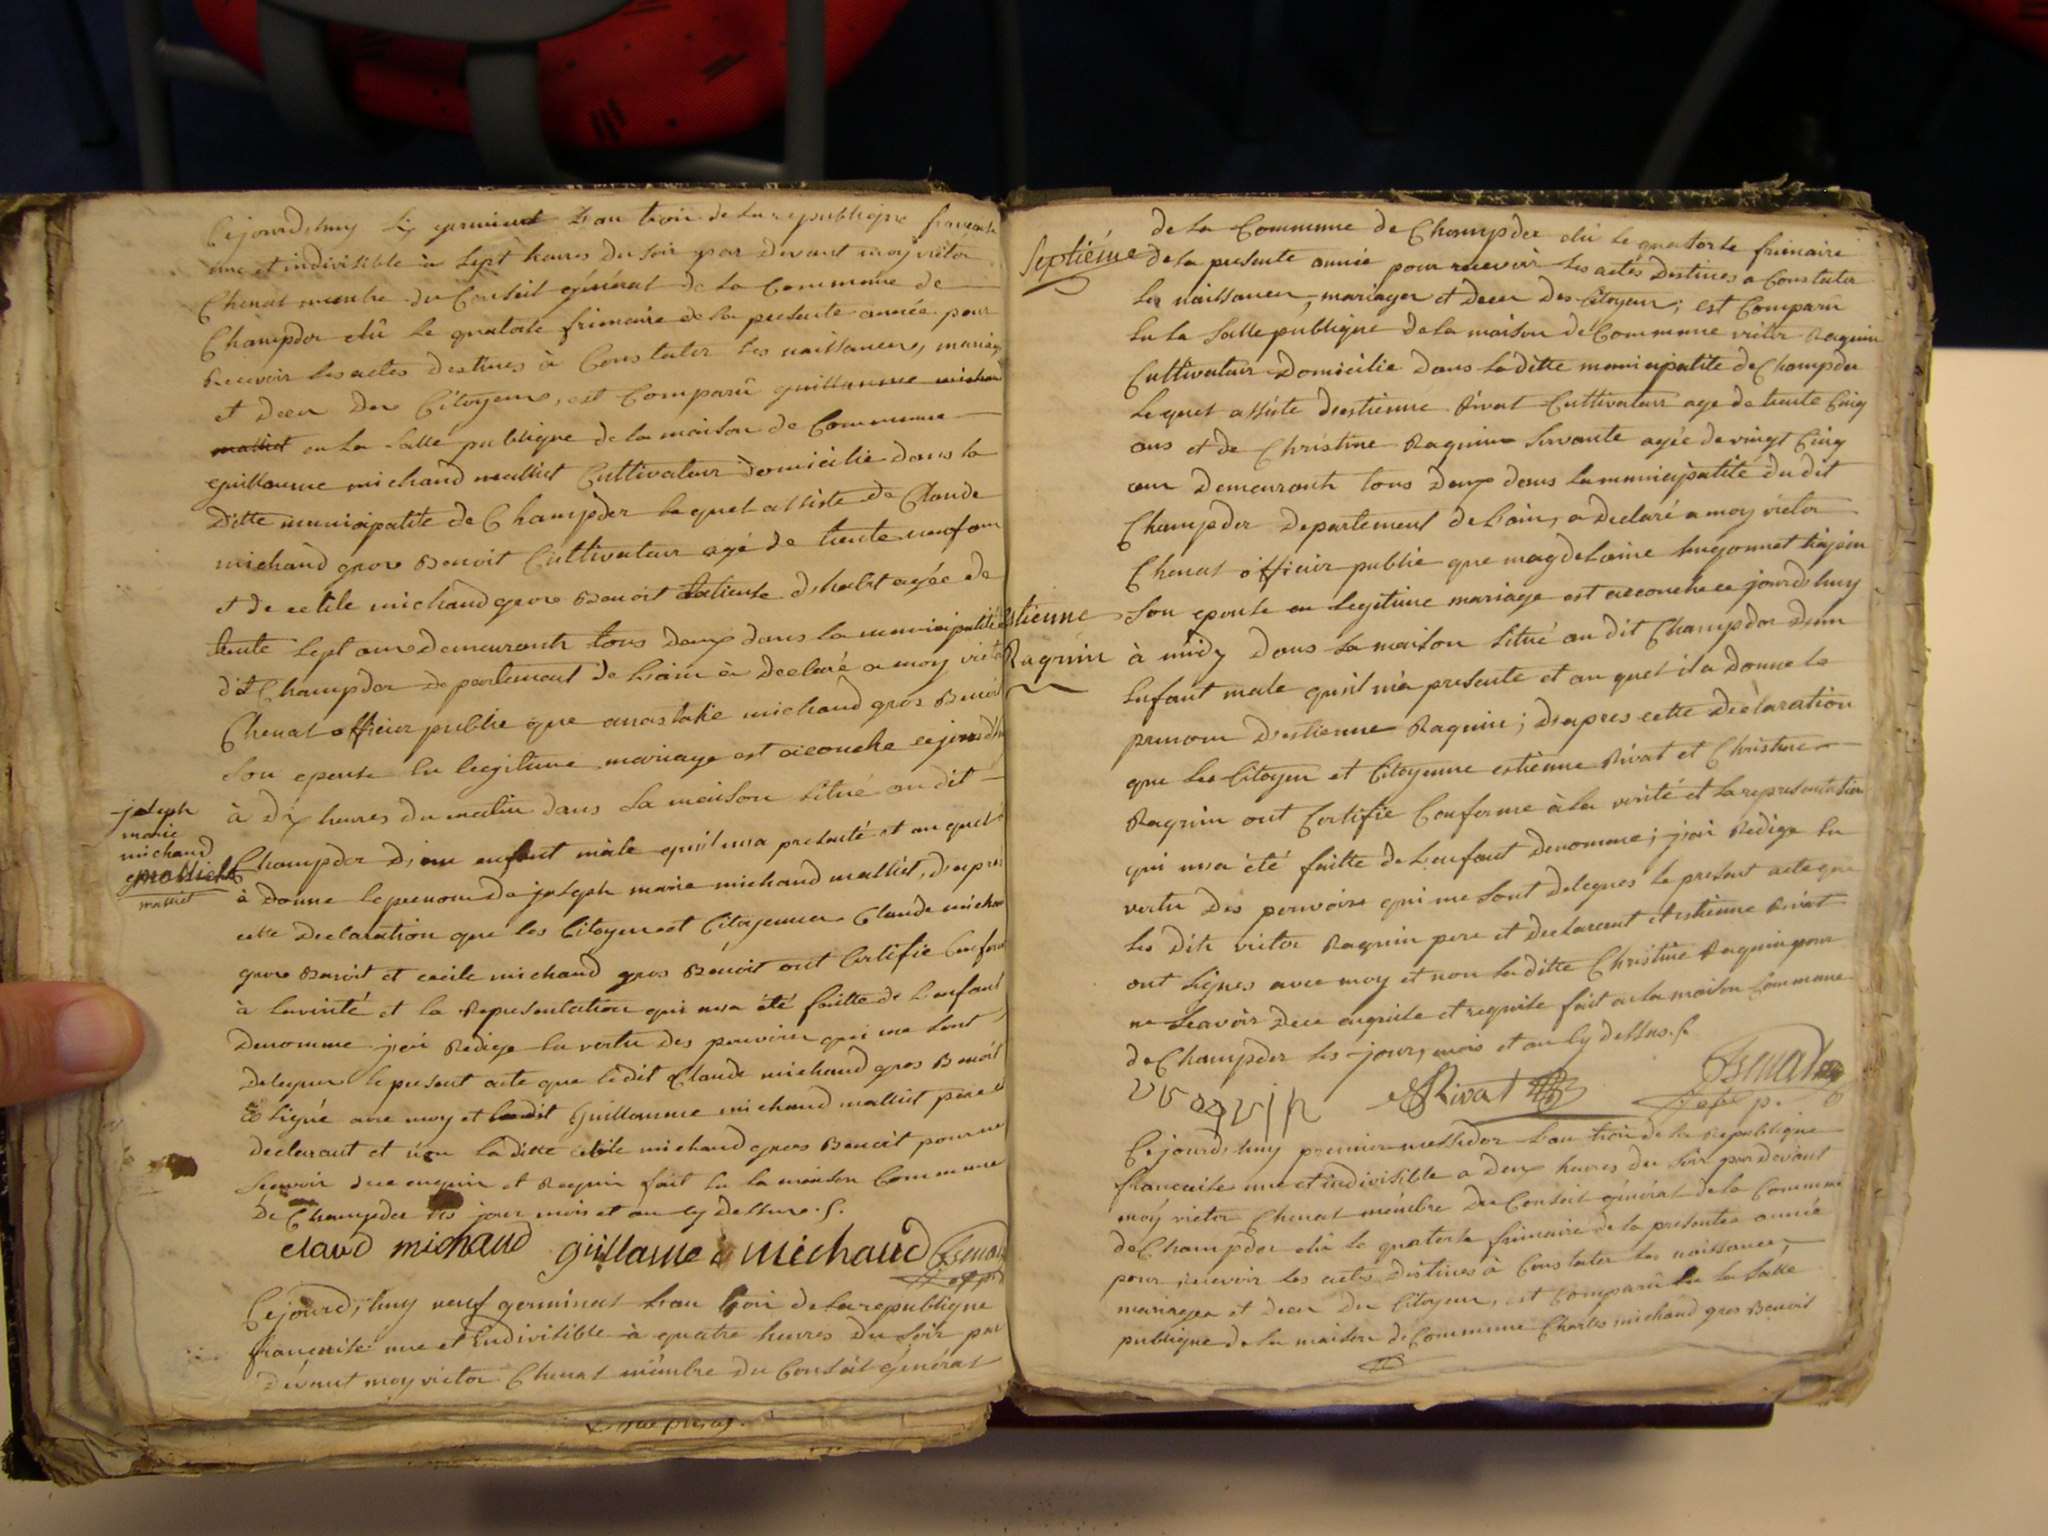 Cejourd,huy six germinal L'an trois de la republique francaise
une et indivisible à Sept heures du soir par devant moy victor
Chenat membre du Conseil général de la Commune de
Champdor elû le quatorse frimaire de la presente année pour
Recevoir les actes destines à Constater les naissances, mariag
et deces des Citoyens, est Comparû guillaume michaud
malliet en la Salle publique de la maison de Commune
guillaume michaud malliet Cultivateur domicilie dans la
ditte municipalite de Champdor lequel assiste de Claude
michaud gros Benoit Cultivateur agé de trente neuf ans
et de cecile michaud gros Benoit d'habit agée de
trente Sept ans demeurants tous deux dans la municipalité
dit Champdor departement de L'ain à declaré a moy victor
Chenat officier public que anastasie michaud gros Benoit
Son epouse en legitime mariage est acouche cejourd'h
à dix heures du matin dans sa maison situé au dit
Champdor d'un enfant mâle qu'il m'a presenté et au quel
à donne le prenom de joseph marie michaud malliet, d'apres
cette declaration que les Citoyen et Citoyenne Claude michau
gros Benoit et cecile michaud gros Benoit ont Certifie Conform
à la vérité et la Représentation qui m'a été faitte de L'enfant
denomme j'ai Redige en vertu des pouvoirs qui me sont
delegues le present acte que ledit Claude michaud gros Benoit
à Signé avec moy et ledit Guillaume michaud malliet pere et
declarant et non la ditte cecile michaud gros Benoit pour ne
Scavoir de ce enquis et Requis fait en la maison Commune
de Champdor les jour mois et an cy dessus.
joseph
marie
michaud
malliet
malliet
claud michaud guillaume michaud Chenat
off. p.
Cejourd,huy neuf germinal L'an trois de la republique
francaise une et Indivisible à quatre heures du Soir par
devant moy victor Chenat membre du Conseil général
Septiéme
de la Commune de Champdor elû le quatorse frimaire
de la presente année pour recevoir les actes destines a Constater
les naissances, mariages et deces des Citoyens; est Comparû
en la Salle publique de la maison de Commune victor Raquin
Cultivateur domicilie dans la ditte municipalite de Champdor
Lequel assiste d'estienne Rivat Cultivateur age de trente Cinq
ans et de Christine Raquin Servante agée de vingt Cinq
ans demeurants tous deux dans la municipalité du dit
Champdor departement de L'ain, a declaré a moy victor
Chenat officier public que magdelaine hugonnet
Son epouse en legitime mariage est acouche ce jourd'huy
à midy dans sa maison situé au dit Champdor d'un
Enfant male qu'il m'a presente et au quel il a donne le
prenom d'estienne Raquin; d'apres cette déclaration
que les Citoyen et Citoyenne estienne Rivat et Christine
Raquin ont Certifie Conforme à la verité et la representation
qui m'a été faitte de L'enfant denomme; j'ai Redige en
vertu des pouvoirs qui me Sont delegues le present acte que
les dits victor Raquin pere et declarant et estienne Rivat
ont Signes avec moy et non la ditte Christine Raquin pour
ne Scavoir de ce enquise et requise fait en la maison Commune
de Champdor les jour, mois et an cy dessus.
estienne
Raquin
Rivat Chenat
off p.
Cejourd,huy premier messidor L'an trois de la Republique
francaise une et indivisible a deux heures du Soir par devant
moy victor Chenat membre du Conseil général de la Commune
de Champdor elû le quatorse frimaire de la presente année
pour recevoir les actes destines à Constater les naissances,
mariages et deces des Citoyens, est Comparû en la Salle
publique de la maison de Commune Charles michaud gros Benoit